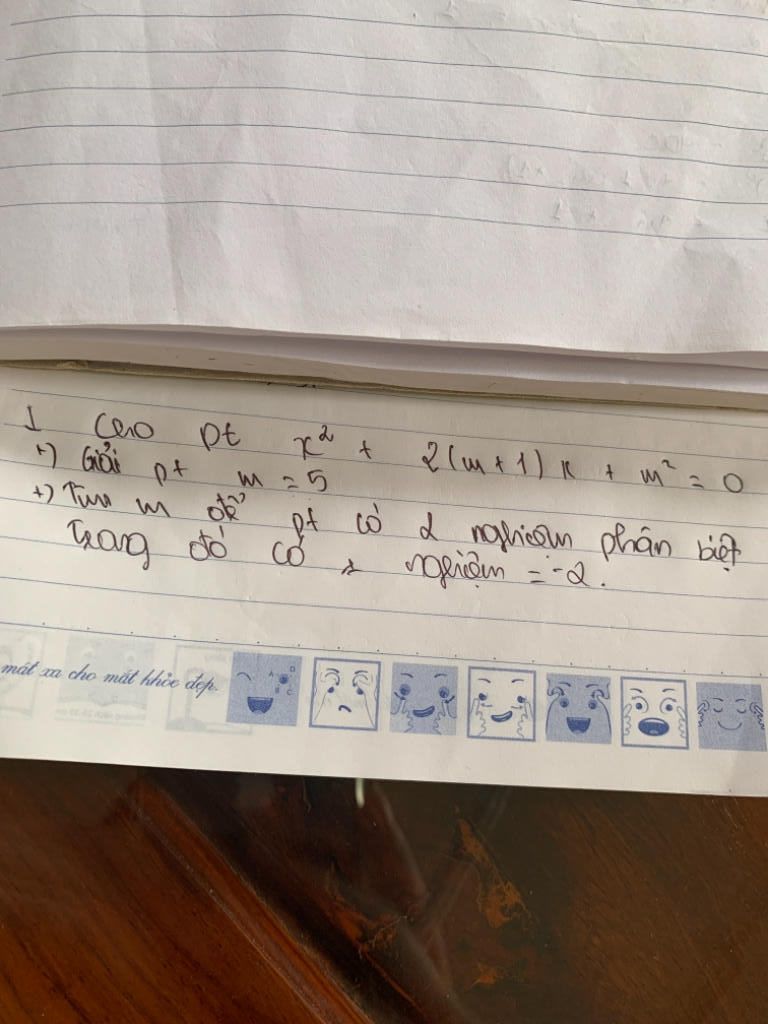 1 Cho pt x² + 2(m+1)x + m² = 0
+) Giải pt m = 5
+) Tìm m để pt có 2 nghiệm phân biệt
trong đó có 1 nghiệm = -2.
mát xa cho mắt khỏe đẹp.